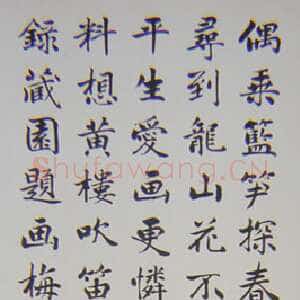 偶乘籃笋探春
尋到龍山花不
平生愛画更憐
料想黃樓吹笛
錄藏園題画梅
Shufawang.CN